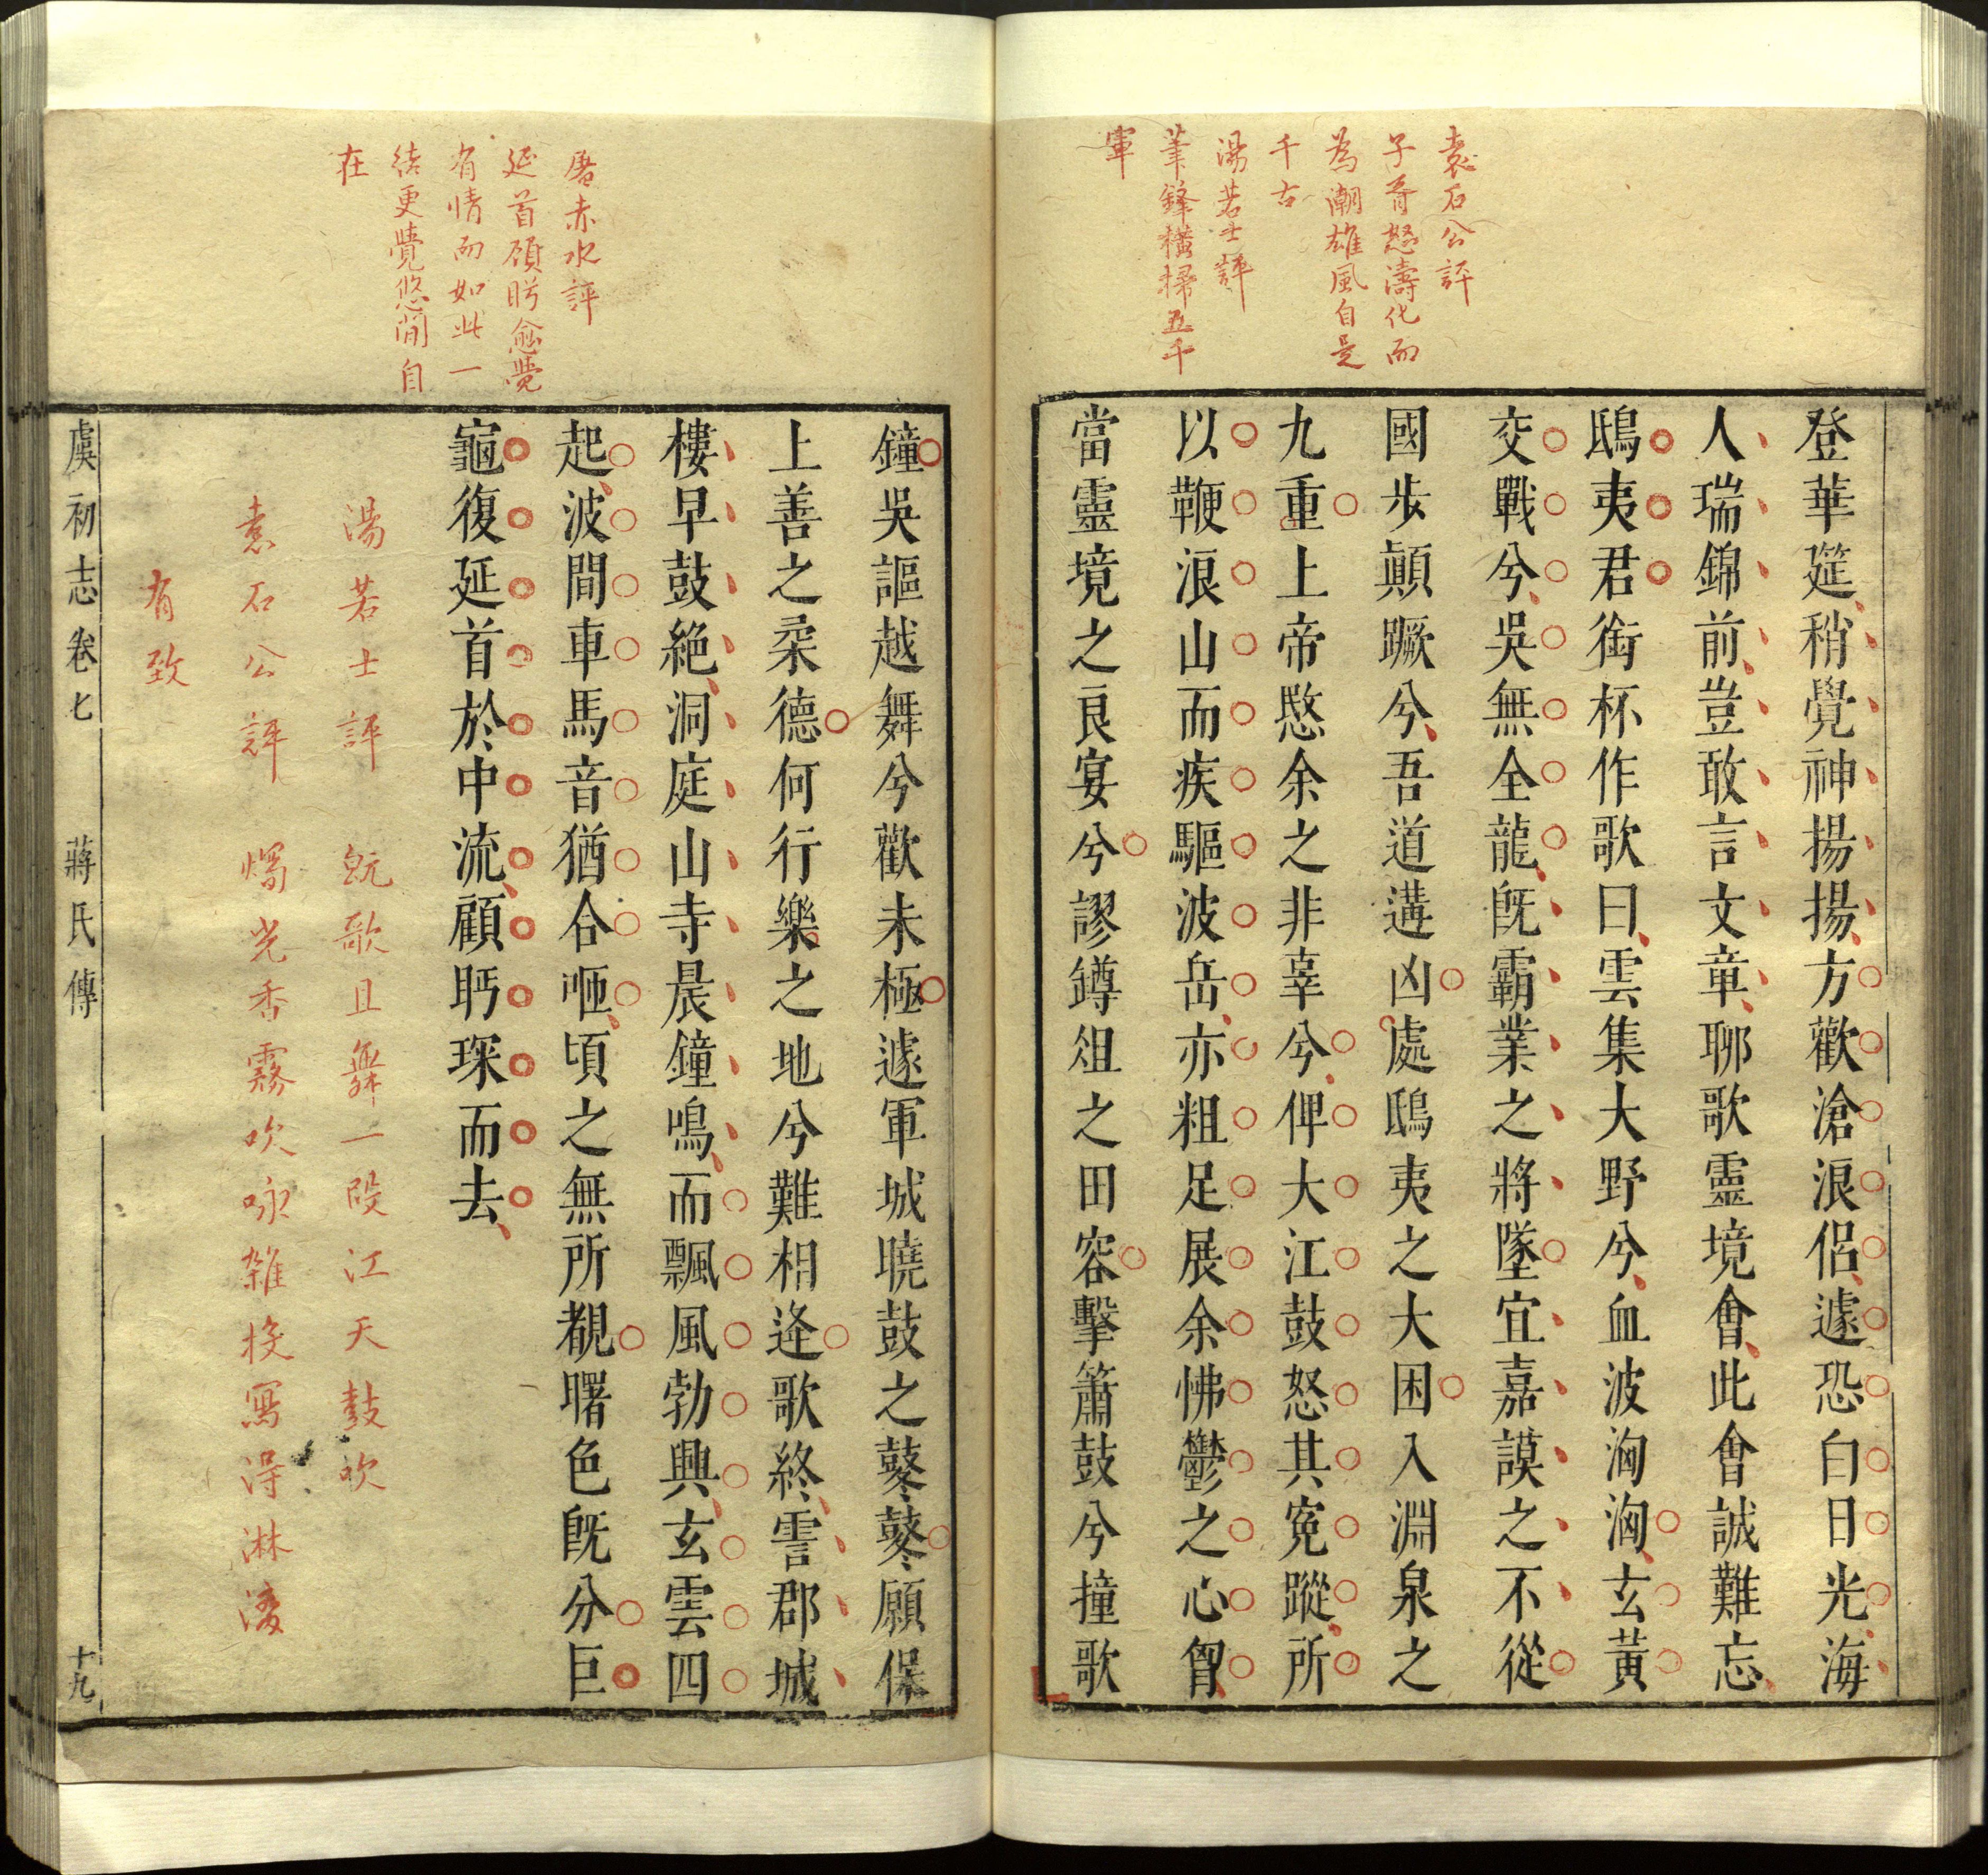 袁石公評
子胥怒濤化而
為潮雄風自是
千古
湯若士評
筆鋒橫掃五千
軍
登華筵稍覺神揚揚方歡滄浪侶遽恐白日光海
人瑞錦前豈敢言文章聊歌靈境會此會誠難忘
鴟夷君銜杯作歌曰雲集大野兮血波洶洶玄黃
交戰兮吳無全龍旣霸業之將墜宜嘉謨之不從
國步顛蹶兮吾道遘凶處鴟夷之大困入淵泉之
九重上帝愍余之非辜兮俾大江鼓怒其寃蹤所
以鞭浪山而疾驅波岳亦粗足展余怫鬱之心胷
當靈境之良宴兮謬鐏俎之田容擊簫鼓兮撞歌
屠赤水評
延首顧眄愈覺
有情而如此一
結更覺悠閒自
在
鐘吳謳越舞兮歡未極遽軍城曉鼓之鼕鼕願保
上善之柔德何行樂之地兮難相逢歌終霅郡城
樓早鼓絕洞庭山寺晨鐘鳴而飄風勃興玄雲四
起波間車馬音猶合咂頃之無所覩曙色旣分巨
龜復延首於中流顧眄琛而去
湯若士評 旣歌且舞一段江天鼓吹
袁石公評 燭光香霧吹咏雜投寫得淋漓
有致
虞初志卷七 蔣氏傳 十九